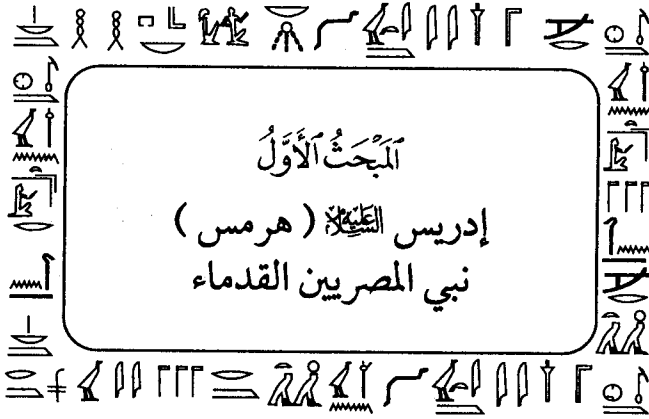 ٱلمَبْحَثُ ٱلأَوَّلُ
إدريس عَلَيْهِ السَّلَامُ ( هرمس )
نبي المصريين القدماء